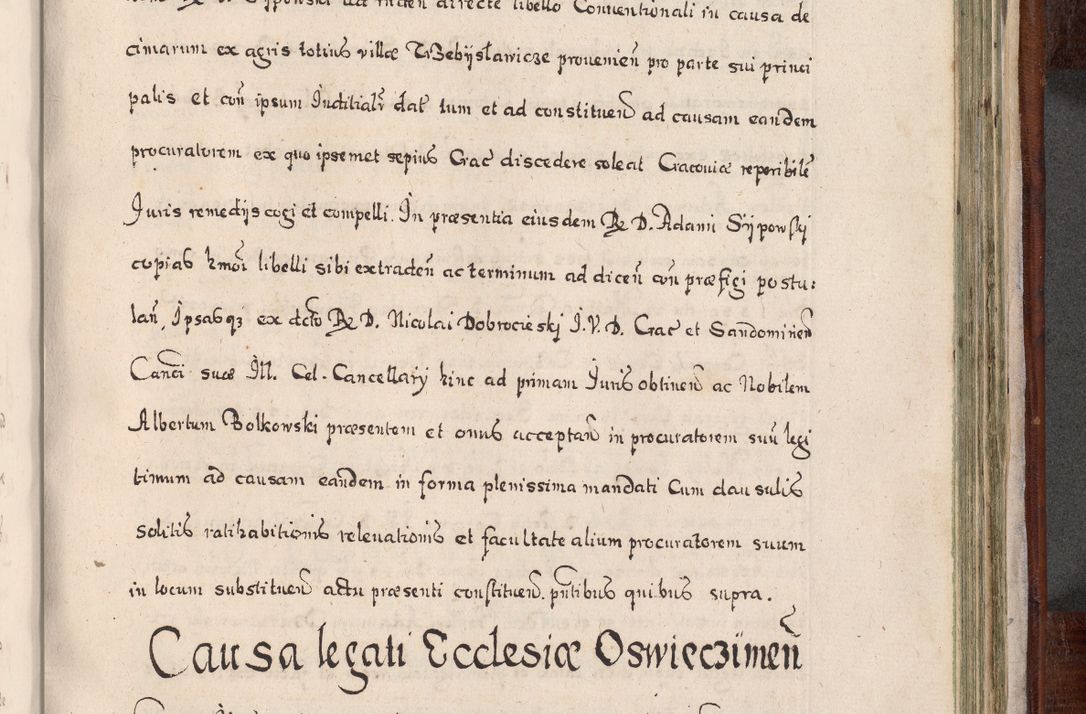 directe libello Conventionali in causa de
cimarum ex agris totius villæ Trzebysławicze prouenień pro parte sui princi
palis et coñ ipsum Juditialr dat tum et ad constituen̄ ad causam eandem
procuratorem ex quo ipsemet sepius Crac discedere soleat Cracoviæ reperibile
Juris remedijs cogi et compelli. In præsentia eiusdem R. D. Adami Sypowskj
copias hmõi libelli sibi extradeñ ac terminum ad diceñ coñ præfigi postu:
lañ, Ipsasqz ex dcto R. D. Nicolai Dobrocieskj J. V. D. Crac et Sandomirień
Canci suæ Ill. Cel. Cancellarij hinc ad primam Juris obtineñ ac Nobilem
Albertum Bolkowski præsentem et onus acceptañ in procuratorem suũ legi
timum ad causam eandem in forma plenissima mandati Cum clausulis
solitis ratihabitionis releuationis et facultate alium procuratorem suum
in locum substitueñ actu præsenti constitueñ. pñtibus quibus supra.
Causa legati Ecclesiæ Oswięczimeñ